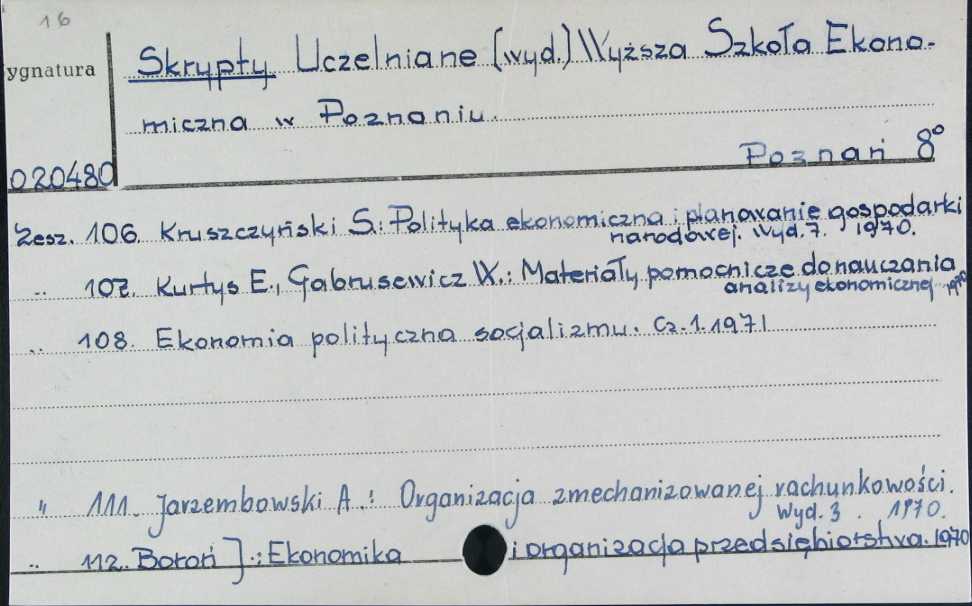 16
ygnatura
Skrypty Uczelniane (wyd.) Wyższa Szkoła Ekono-
miczna w Poznaniu.
Poznań 8°
020480
Zesz. 106. Kruszczyński S.: Polityka ekonomiczna i planowanie gospodarki
narodowej. Wyd. 7. 1970.
„ 107. Kurtys E., Gabrusewicz W.: Materiały pomocnicze do nauczania
analizy ekonomicznej 1970
„ 108. Ekonomia polityczna socjalizmu. Cz. 1. 1971
„ 111. Jarzembowski A.: Organizacja zmechanizowanej rachunkowości.
Wyd. 3. 1970.
„ 112. Boroń J.: Ekonomika i organizacja przedsiębiorstwa. 1970